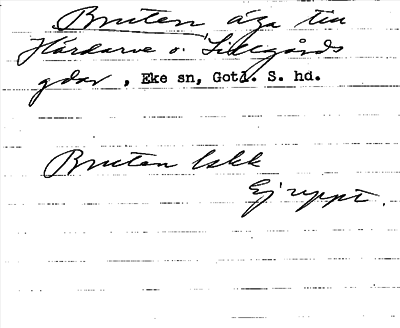 Bruten äga till
Hårdarve o. Lillegårds
gdar, Eke sn, Gotl. S. hd.
Bruten lskk
Ej uppt.